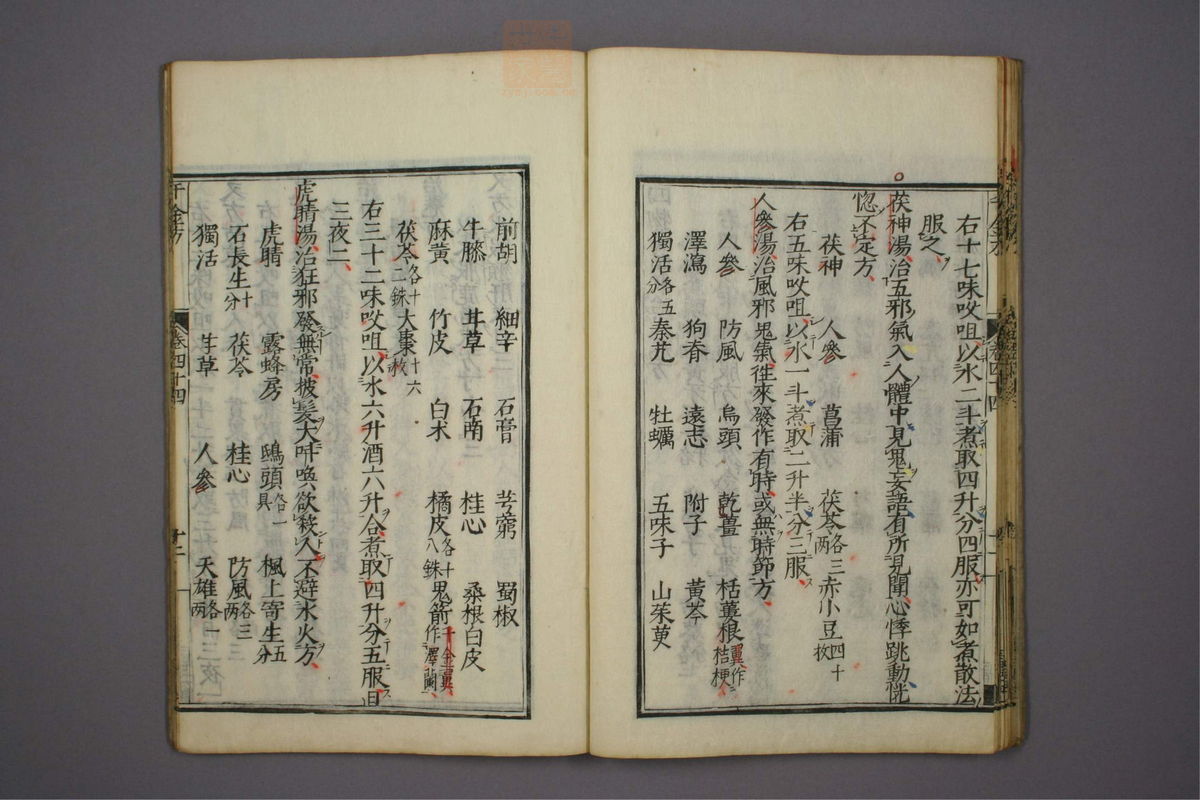 右十七味㕮咀以水二斗煮取四升分四服亦可如煮散法
服之
茯神湯治五邪氣入人體中見鬼妄語有所見聞心悸跳動恍
惚不定方
茯神 人參 菖蒲 茯苓各三两 赤小豆四十枚
右五味㕮咀以水一斗煮取二升半分三服
人參湯治風邪鬼氣徃來發作有時或無時節方
人參 防風 烏頭 乾薑 栝蔞根翼作桔梗
澤瀉 狗脊 遠志 附子 黃芩
獨活各五分 秦艽 牡蠣 五味子 山茱萸
前胡 細辛 石膏 芎藭 蜀椒
牛膝 甘草 石南 桂心 桑根白皮
麻黃 竹皮 白术 橘皮各十八銖 鬼箭千金翼作澤蘭
茯苓各十二銖 大棗十六枚
右三十二味㕮咀以水六升酒六升合煮取四升分五服日
三夜二
虎睛湯治狂邪發無常披髮大叫喚欲殺人不避水火方
虎睛 露蜂房 鴟頭各一具 楓上寄生五分
石長生十分 茯苓 桂心 防風各三两
獨活 甘草 人參 天雄各一两
千金方 卷四十四 廿二